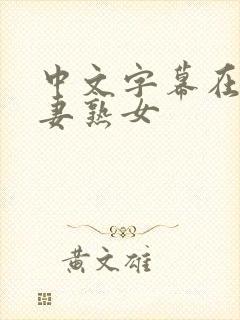 中文字幕在
妻熟女
黄文雄